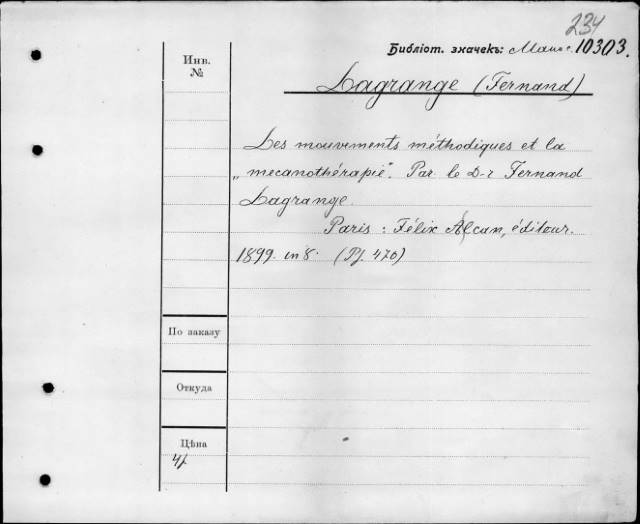 234
Библіот. значекъ: 10303.
Инв.
№
Lagrange (Fernand)
Les mouvements méthodiques et la
„mecanothérapie". Par le D-r Fernand
Lagrange.
Paris: Félix Alcan, éditour.
1899. in 8. (Pf. 470)
По заказу
Откуда
Цѣна